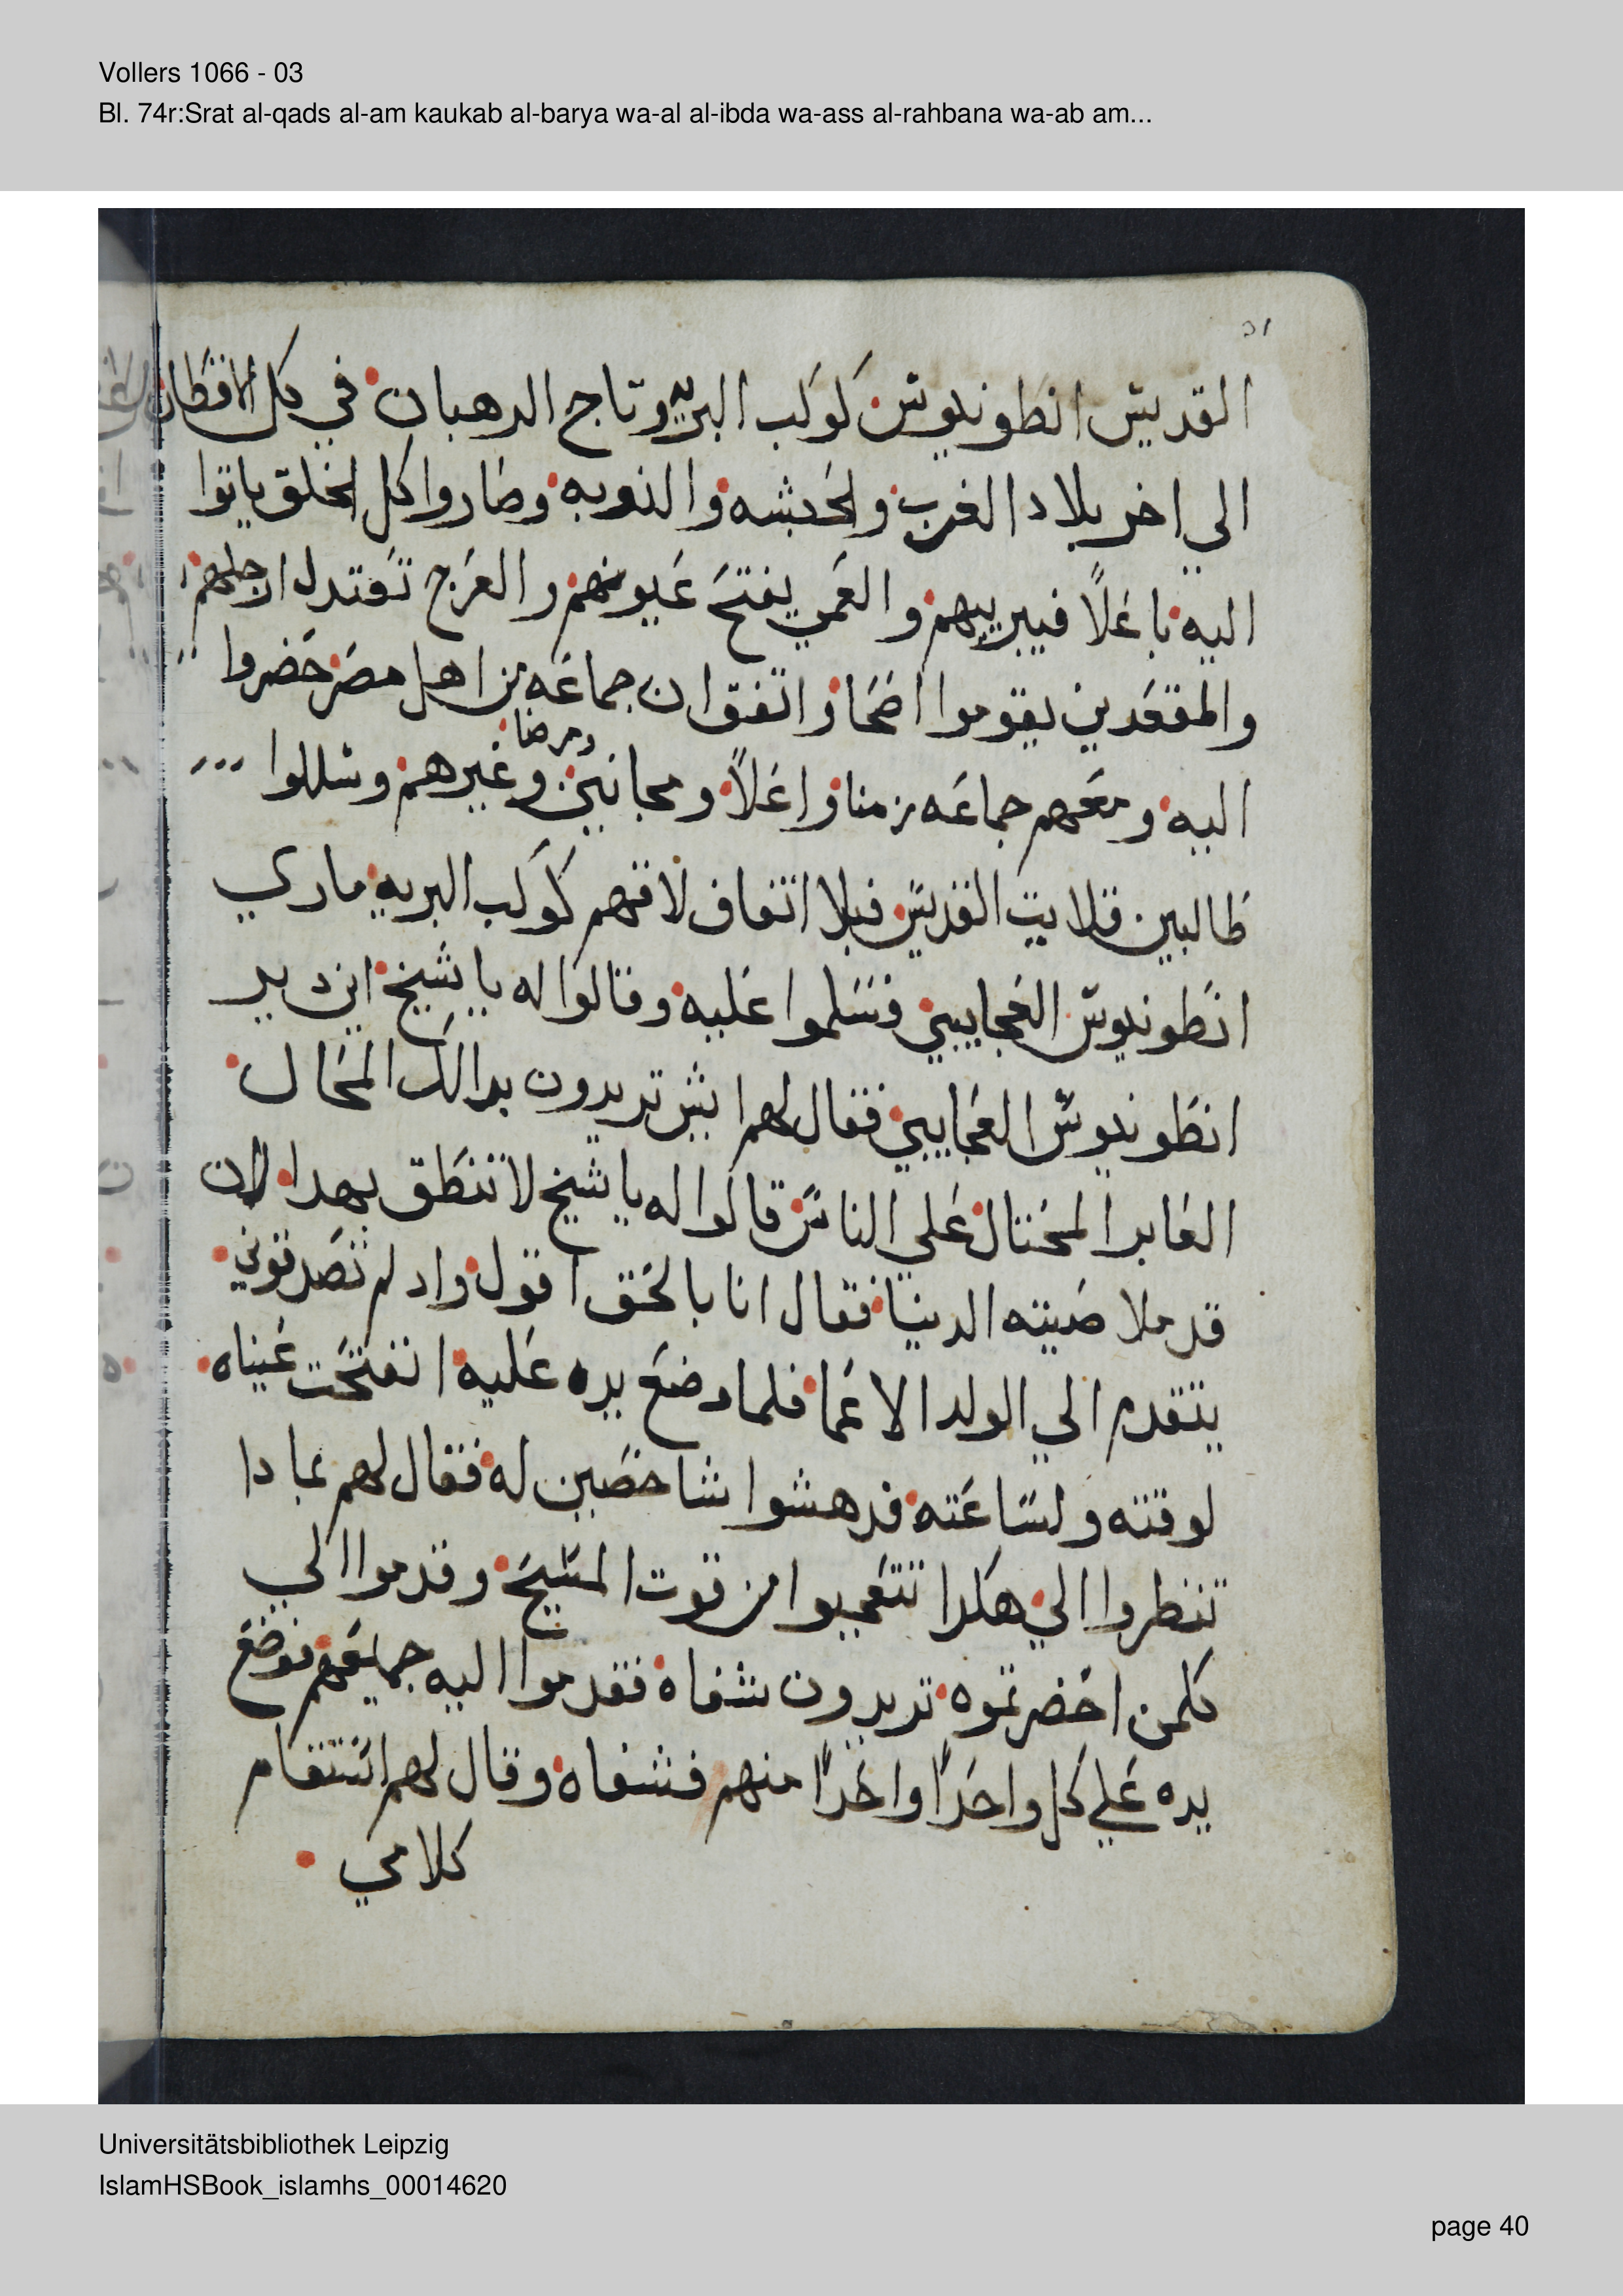 Vollers 1066 - 03
Bl. 74r:Srat al-qads al-am kaukab al-barya wa-al al-ibda wa-ass al-rahbana wa-ab am...
القديس انطونديوس كوكب البريه وتاج الرهبان في كل الاقطار
الي اخر بلاد الغرب والحبشه والنوبه وصاروا كل الخلق ياتوا
اليه باعلاً فيبريهم والعمي يفتح عيونهم والعرج تعتدل ارجلهم
والمقعدين يقوموا اصحا واتفق ان جماعه من اهل مصر حضروا
اليه ومعهم جماعه زمنا واعلاً ومجانين ومرضا وغيرهم وسالوا
طالبين قلايت القديس فبلا اتفاق لاقهم كوكب البريه ماري
انطونديوس العجايبي فسلموا عليه وقالوا له يا شيخ اين دير
انطونديوس العجايبي فقال لهم ايش تريدون بدالك المحال
العابر المحتال علي الناس قالوا له يا شيخ لا تنطق بهدا لان
قد ملا صيته الدنيا فقال انا بالحق اقول واد لم تصدقوني
يتقدم الي الولد الاعما فلما وضع يده عليه انفتحت عيناه
لوقته ولساعته فدهشوا شاخصين له فقال لهم بمادا
تنظروا الي هكدا تتعجبوا من قوت المسيح وقدموا الي
كلمن احضرتموه تريدون شفاه فقدموا اليه جميعهم فوضع
يده علي كل واحداً واحداً منهم فشفاه وقال لهم استقام
كلامي
Universitätsbibliothek Leipzig
IslamHSBook_islamhs_00014620
page 40